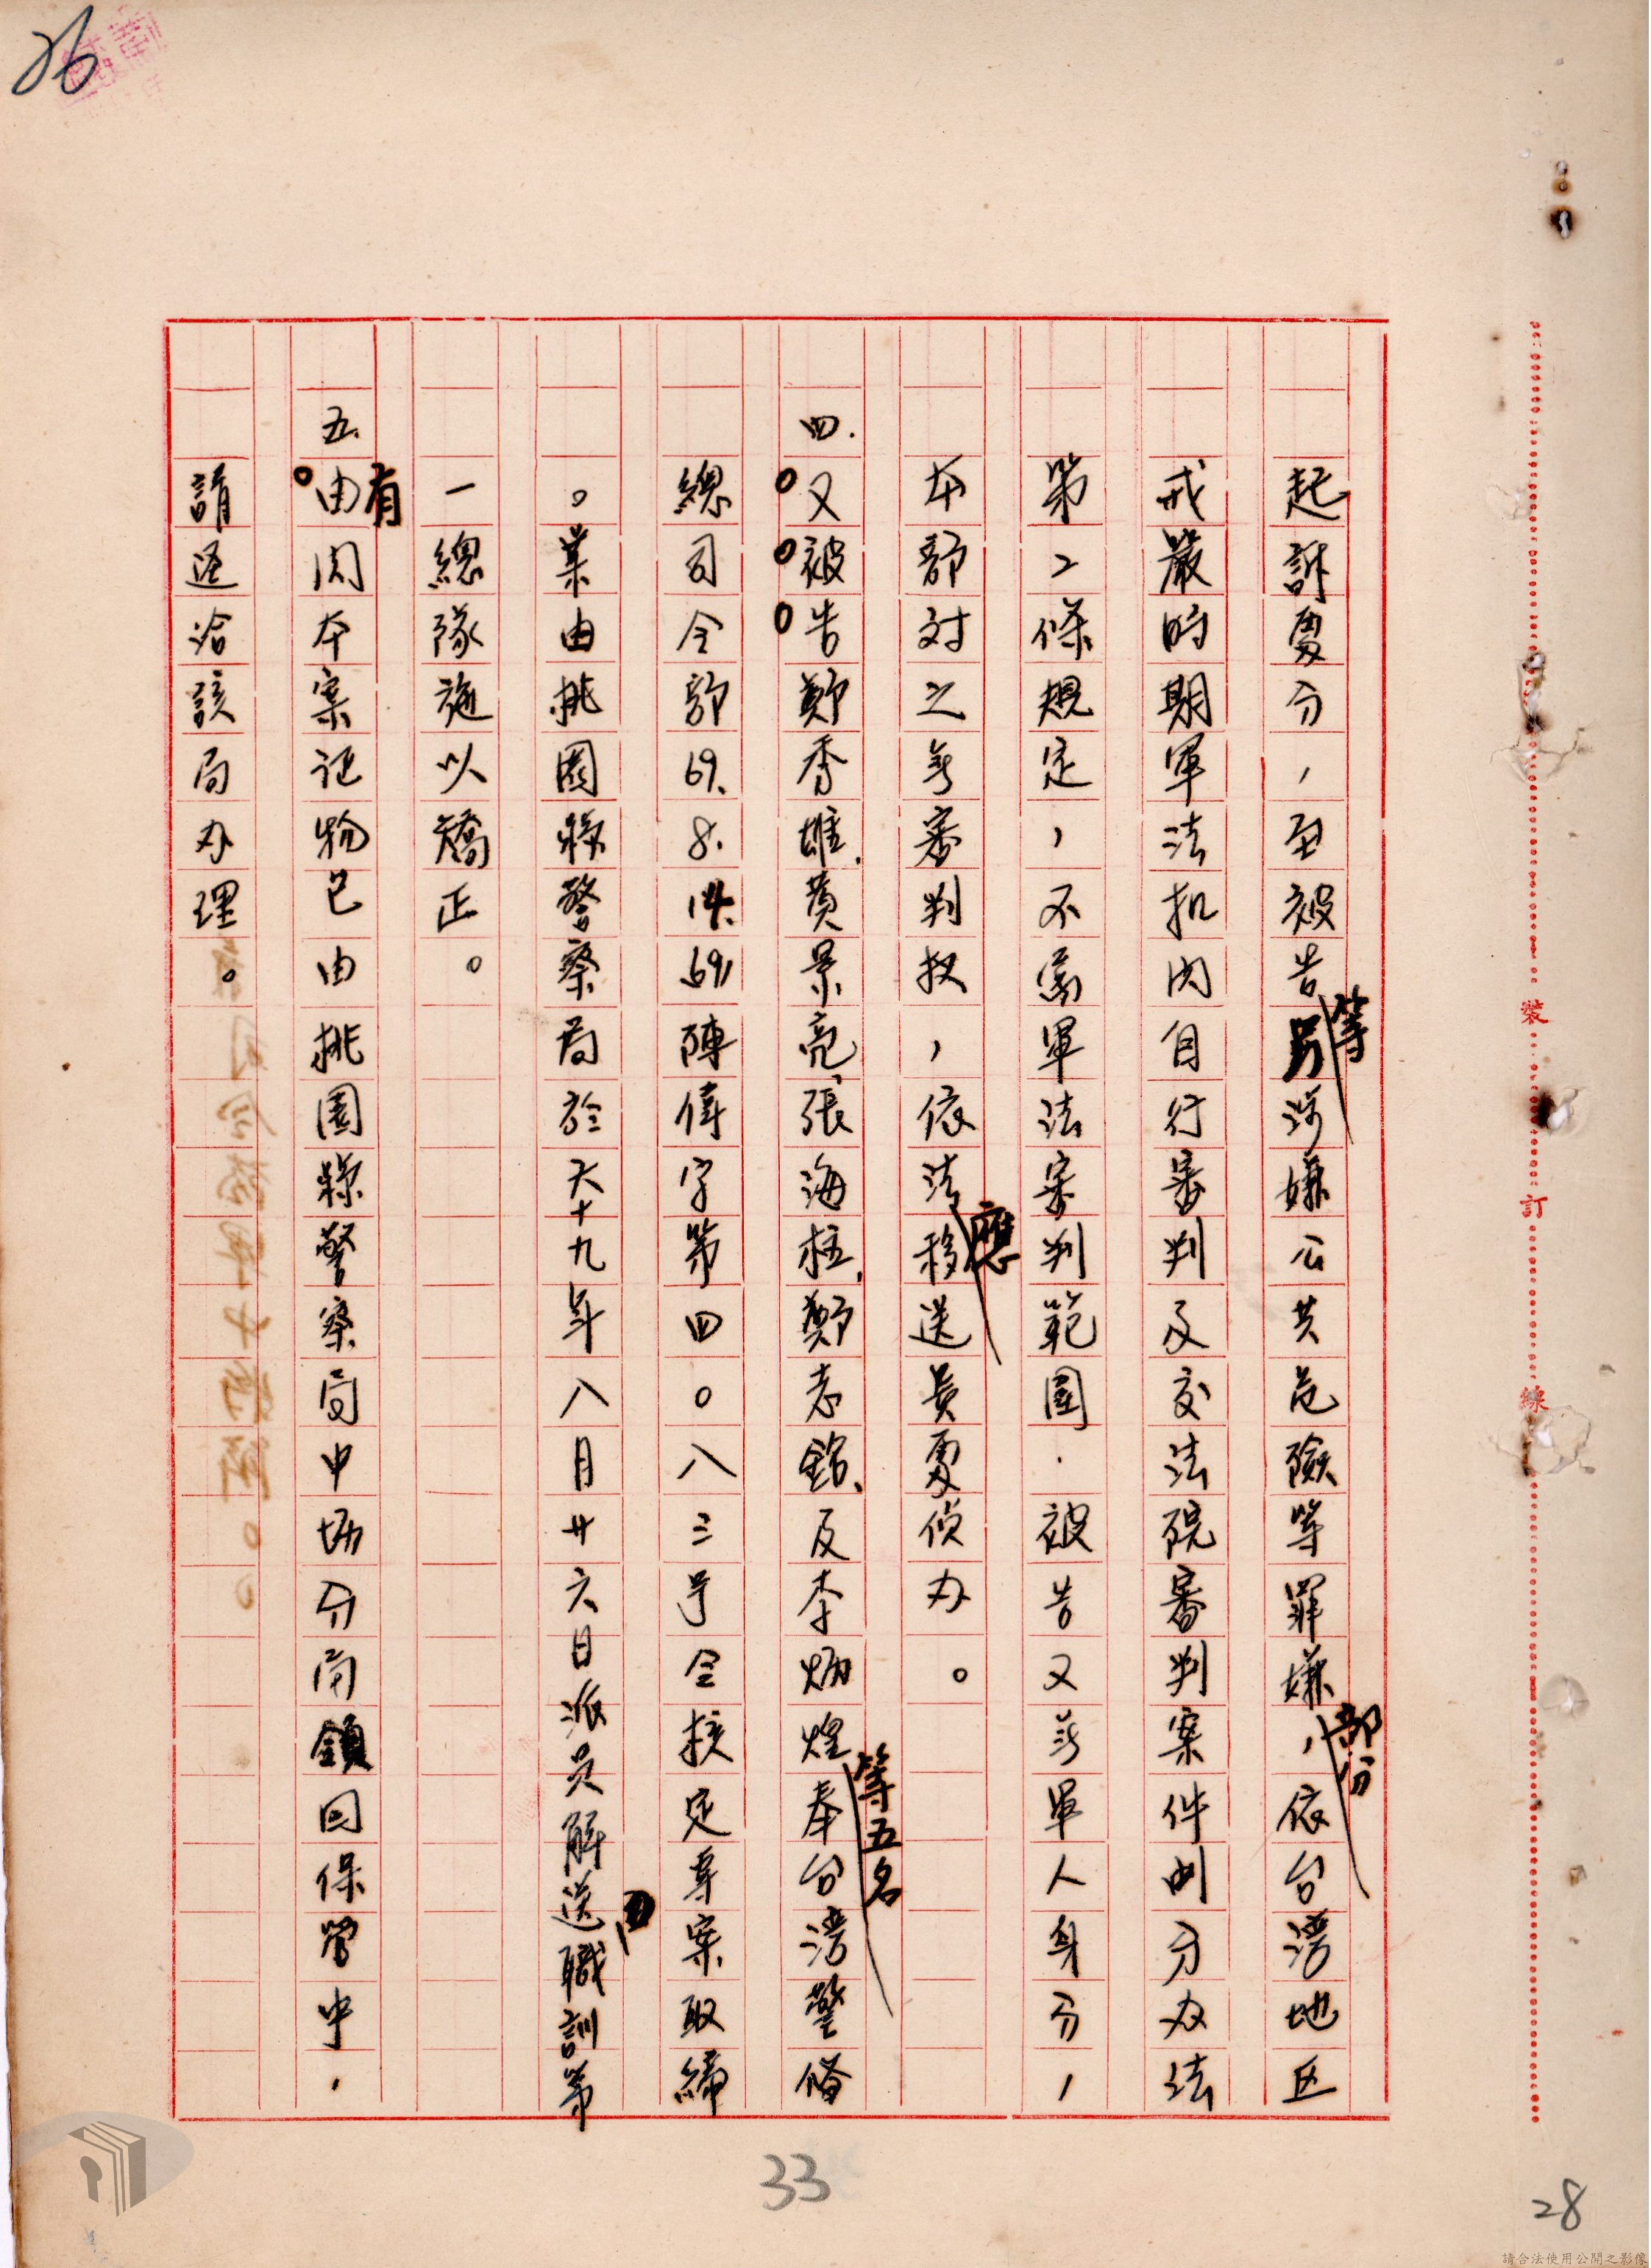 26
起訴處分，至被告等另涉嫌公共危險等罪嫌部分，依台湾地区
戒嚴時期軍法机関自行審判及交法院審判案件划分办法
第二條規定，不属軍法審判範圍，被告又無軍人身分，
本部対之無審判权，依法應移送貴處偵办。
四.又被告鄭秀雄、黄景亮、張海柱、鄭志銘、及李炳煌等五名奉台湾警俻
總司令部69.8.14.(69)陣偉字第四〇八三号令核定專案取締
。業由桃園縣警察局於六十九年八月廿六日派員解送職訓第
一總隊施以矯正。
五.由有関本案証物已由桃園縣警察局中坜分局領回保管中，
請逕洽該局办理。
裝
訂
線
33
28
請合法使用公開之影像